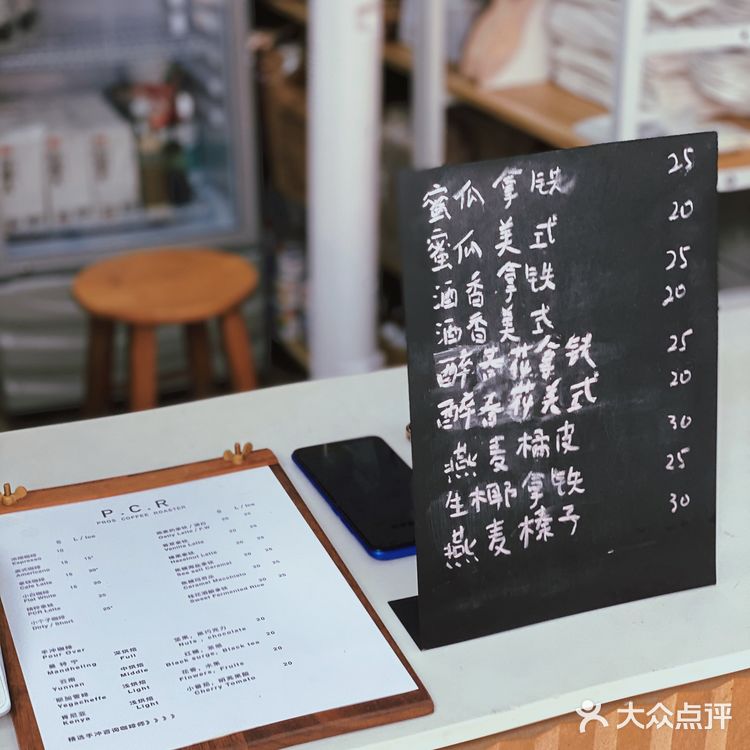 蜜瓜拿铁 25
蜜瓜美式 20
酒香拿铁 25
酒香美式 20
醉昔花拿铁 25
醉昔花美式 20
燕麦橘皮 30
生椰拿铁 25
燕麦榛子 30
P.C.R
PROS COFFEE ROASTER
S L/Ice
S L/Ice
浓缩咖啡 10
Espresso
美式咖啡 15 15°
Americano
拿铁咖啡 15 20
Cafe Latte
小白咖啡 20
Flat White
精粹拿铁 25
PCR Latte
小个子咖啡 25°
Dirty / Short
燕麦奶拿铁 / 澳白 25
Oatly Latte / F.W
香草拿铁 20 25
Vanilla Latte
榛果拿铁 20 25
Hazelnut Latte
Sea salt Caramel
焦糖玛奇朵 25
Caramel Macchiato
桂花酒酿拿铁 25
Sweet Fermented Rice
手冲咖啡 深烘焙 坚果，黑巧克力 20
Pour Over Full Nuts , chocolate
曼特宁 中烘焙 红糖，茶感 20
Mandheling Middle Black surge, Black tea
云南 浅烘焙 花香，水果 20
Yunnan Light Flowers, Fruits
耶加雪啡 浅烘焙 20
Yegacheffe Light Cherry Tomato
肯尼亚
Kenya
精选手冲咨询咖啡师》》》》
大众点评